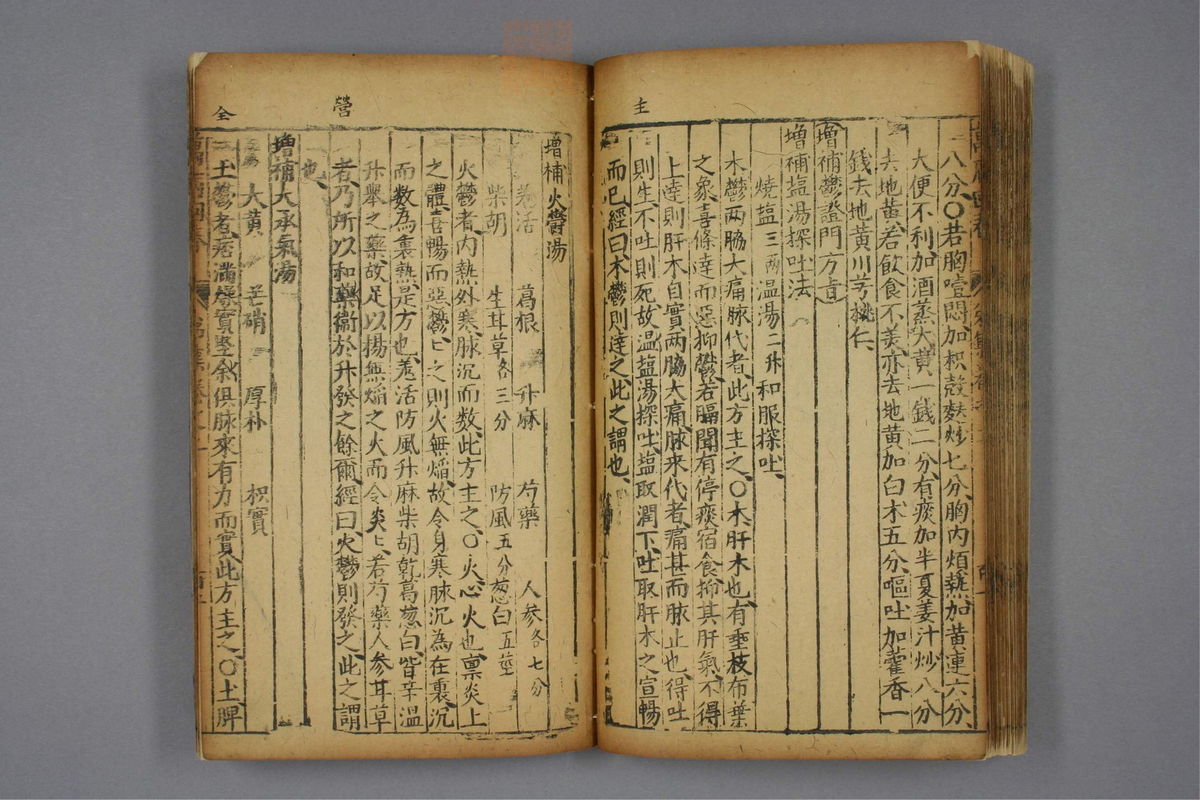 主
八分〇若胸噎悶加枳殼麩炒七分胸內煩熱加黃連六分
大便不利加酒蒸大黃一錢二分有痰加半夏姜汁炒八分
去地黃若飲食不美亦去地黃加白朮五分嘔吐加藿香一
錢去地黃川芎桃仁
增補鬱證門方旨
增補塩湯探吐法
燒塩三兩温湯二升和服探吐
木鬱兩脇大痛脉代者此方主之〇木肝木也有垂枝布葉
之象喜條達而惡抑鬱若膈閒有停痰宿食抑其肝氣不得
上達則肝木自實兩脇大痛脉來代者痛甚而脉止也得吐
則生不吐則死故温塩湯探吐塩取潤下吐取肝木之宣暢
而已經曰木鬱則達之此之謂也
營
全
增補火鬱湯
羗活 葛根 升麻 芍藥 人參各七分
柴胡 生甘草各三分 防風五分葱白五莖
火鬱者內熱外寒脉沉而數此方主之〇火心火也稟炎上
之體喜暢而惡鬱匕之則火無熖故令身寒脉沉為在裏沉
而數為裏熱是方也羗活防風升麻柴胡乾葛葱白皆辛温
升舉之藥故足以揚無熖之火而令炎匕若芍藥人參甘草
者乃所以和榮衞於升發之餘爾經曰火鬱則發之此之謂
也
增補大承氣湯
大黃 芒硝 厚朴 枳實
土鬱者痞滿燥實堅余俱脉來有力而實此方主之〇土脾